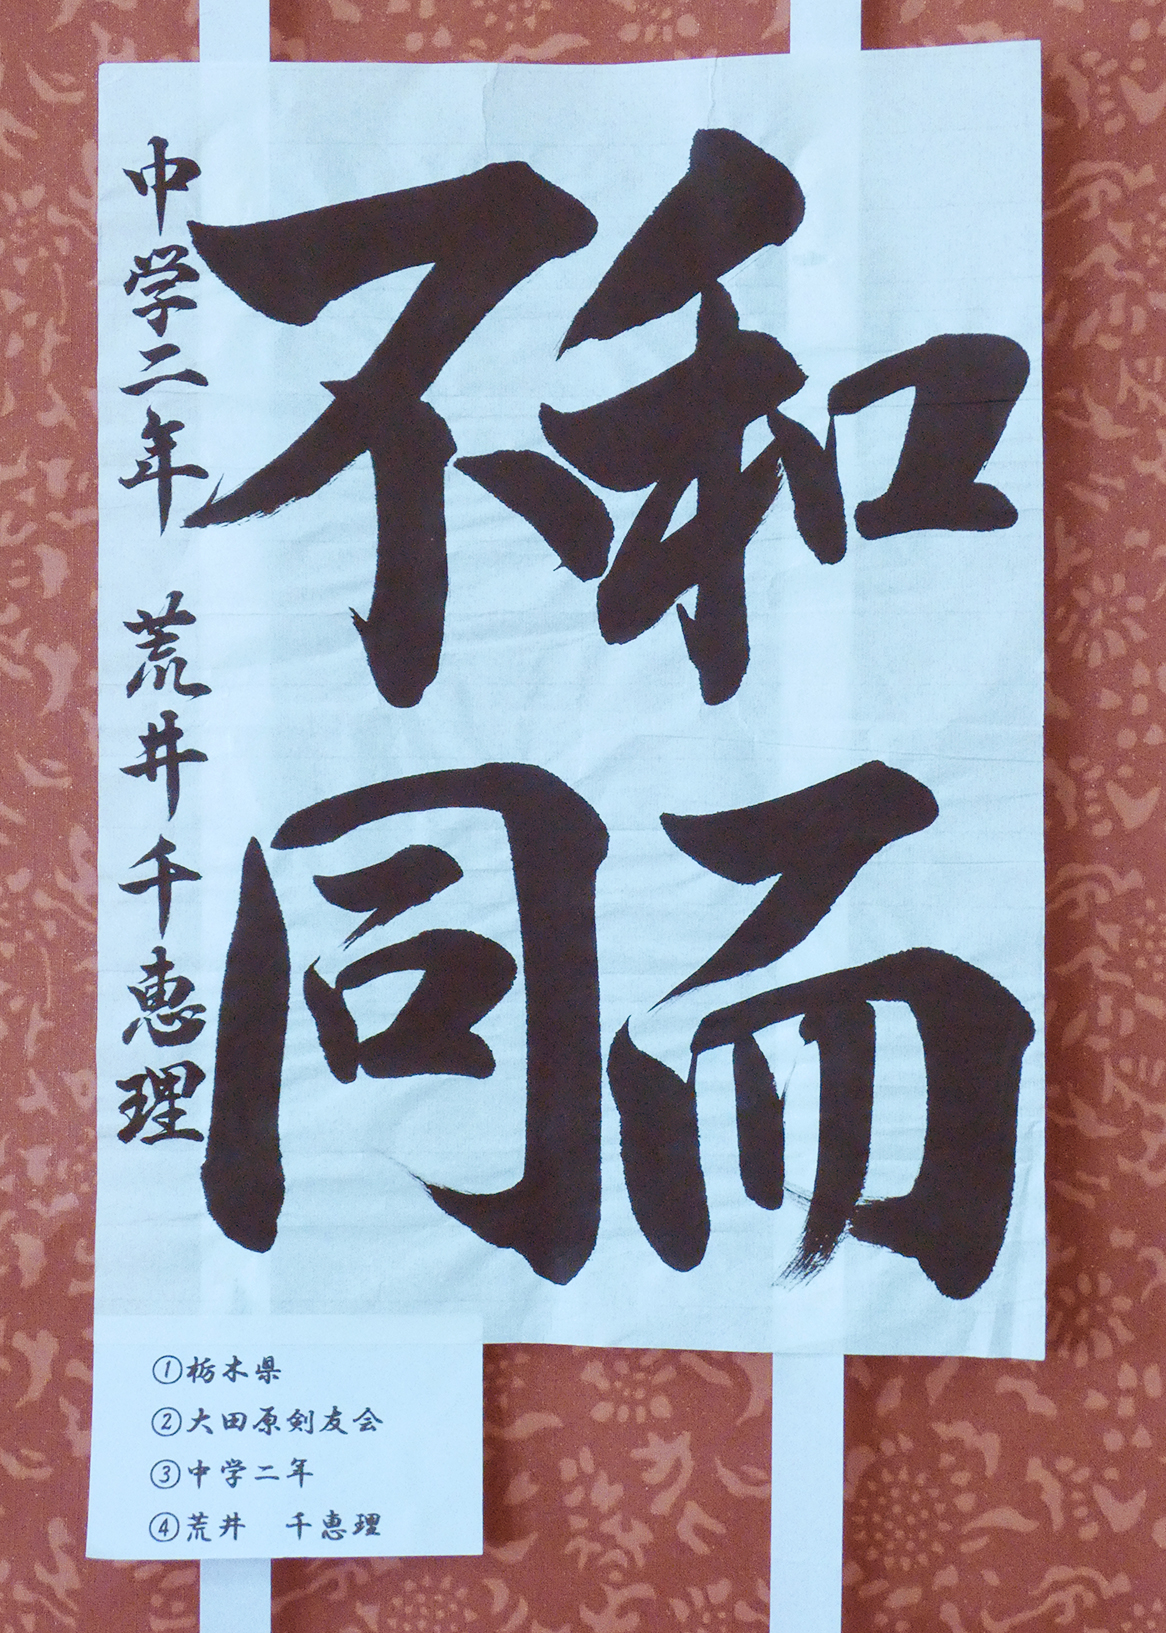 和而
不同
中学二年 荒井千恵理
①栃木県
②大田原剣友会
③中学二年
④荒井 千恵理